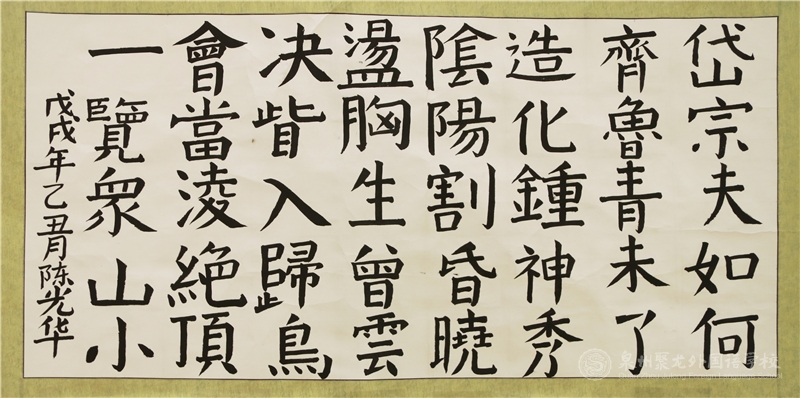 岱宗夫如何
齊魯青未了
造化鍾神秀
陰陽割昏曉
盪胸生曾雲
决眥入歸鳥
會當淩絶頂
一覽衆山小
戊戌年乙丑月陈光华
泉州聚龙外国语学校